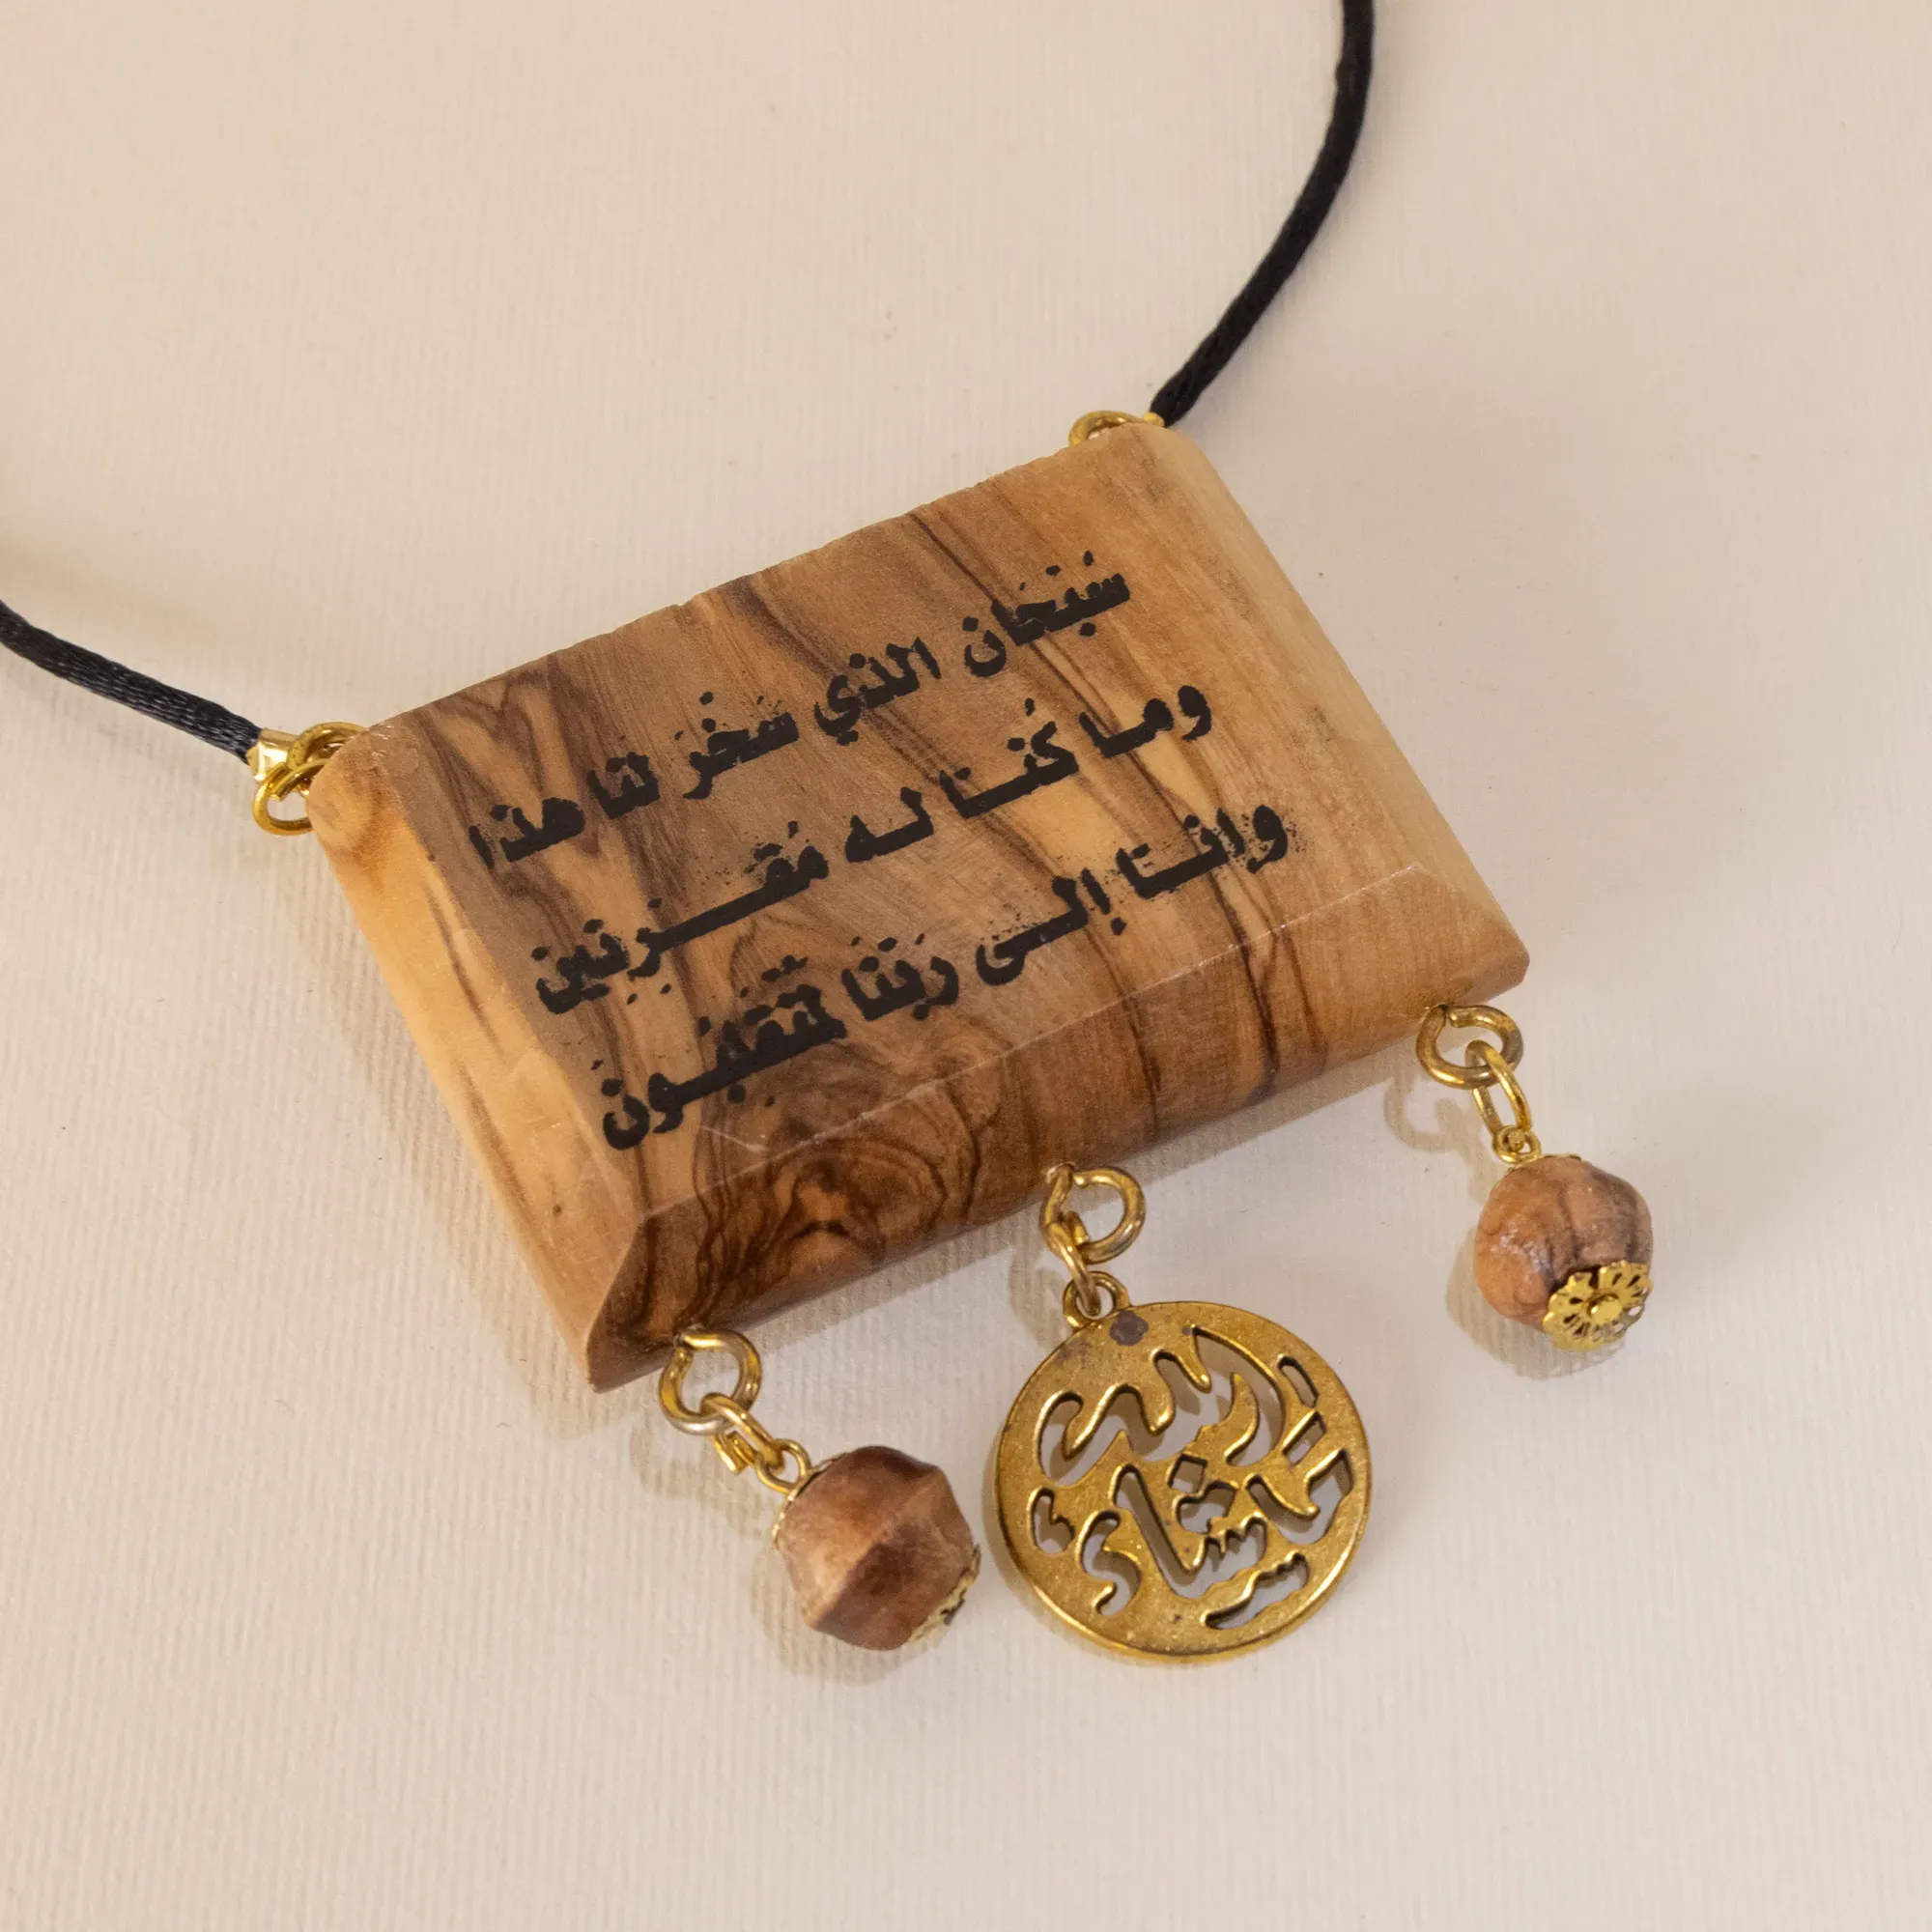 سُبْحَان الذي سَخَّرَ لنا هذا
وما كُنا له مُقرنين
وانا إلى رَبّنَا لمُنقَلبُونَ
ما شاء الله